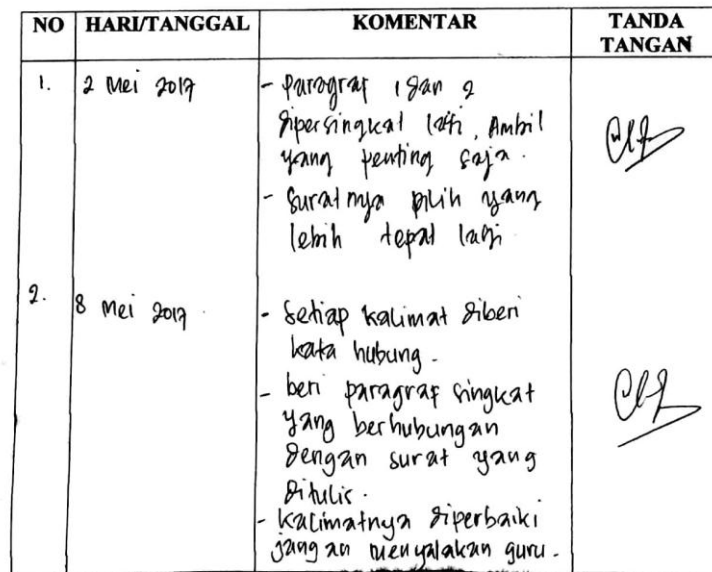 NO HARI/TANGGAL KOMENTAR TANDA TANGAN
1. 2 Mei 2017 - Paragraf 1 dan 2
dipersingkat lagi, Ambil
yang penting saja.
- Suratnya pilih yang
lebih tepat lagi
2. 8 Mei 2017 - Setiap kalimat diberi
kata hubung.
- beri paragraf singkat
yang berhubungan
dengan surat yang
ditulis.
- Kalimatnya diperbaiki
jangan menyalakan guru.